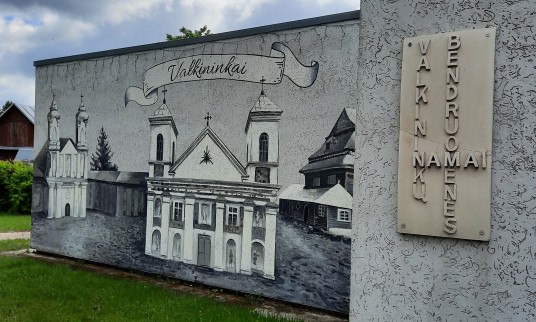 Valkininkai
VALKININKŲ
BENDRUOMENĖS
NAMAI